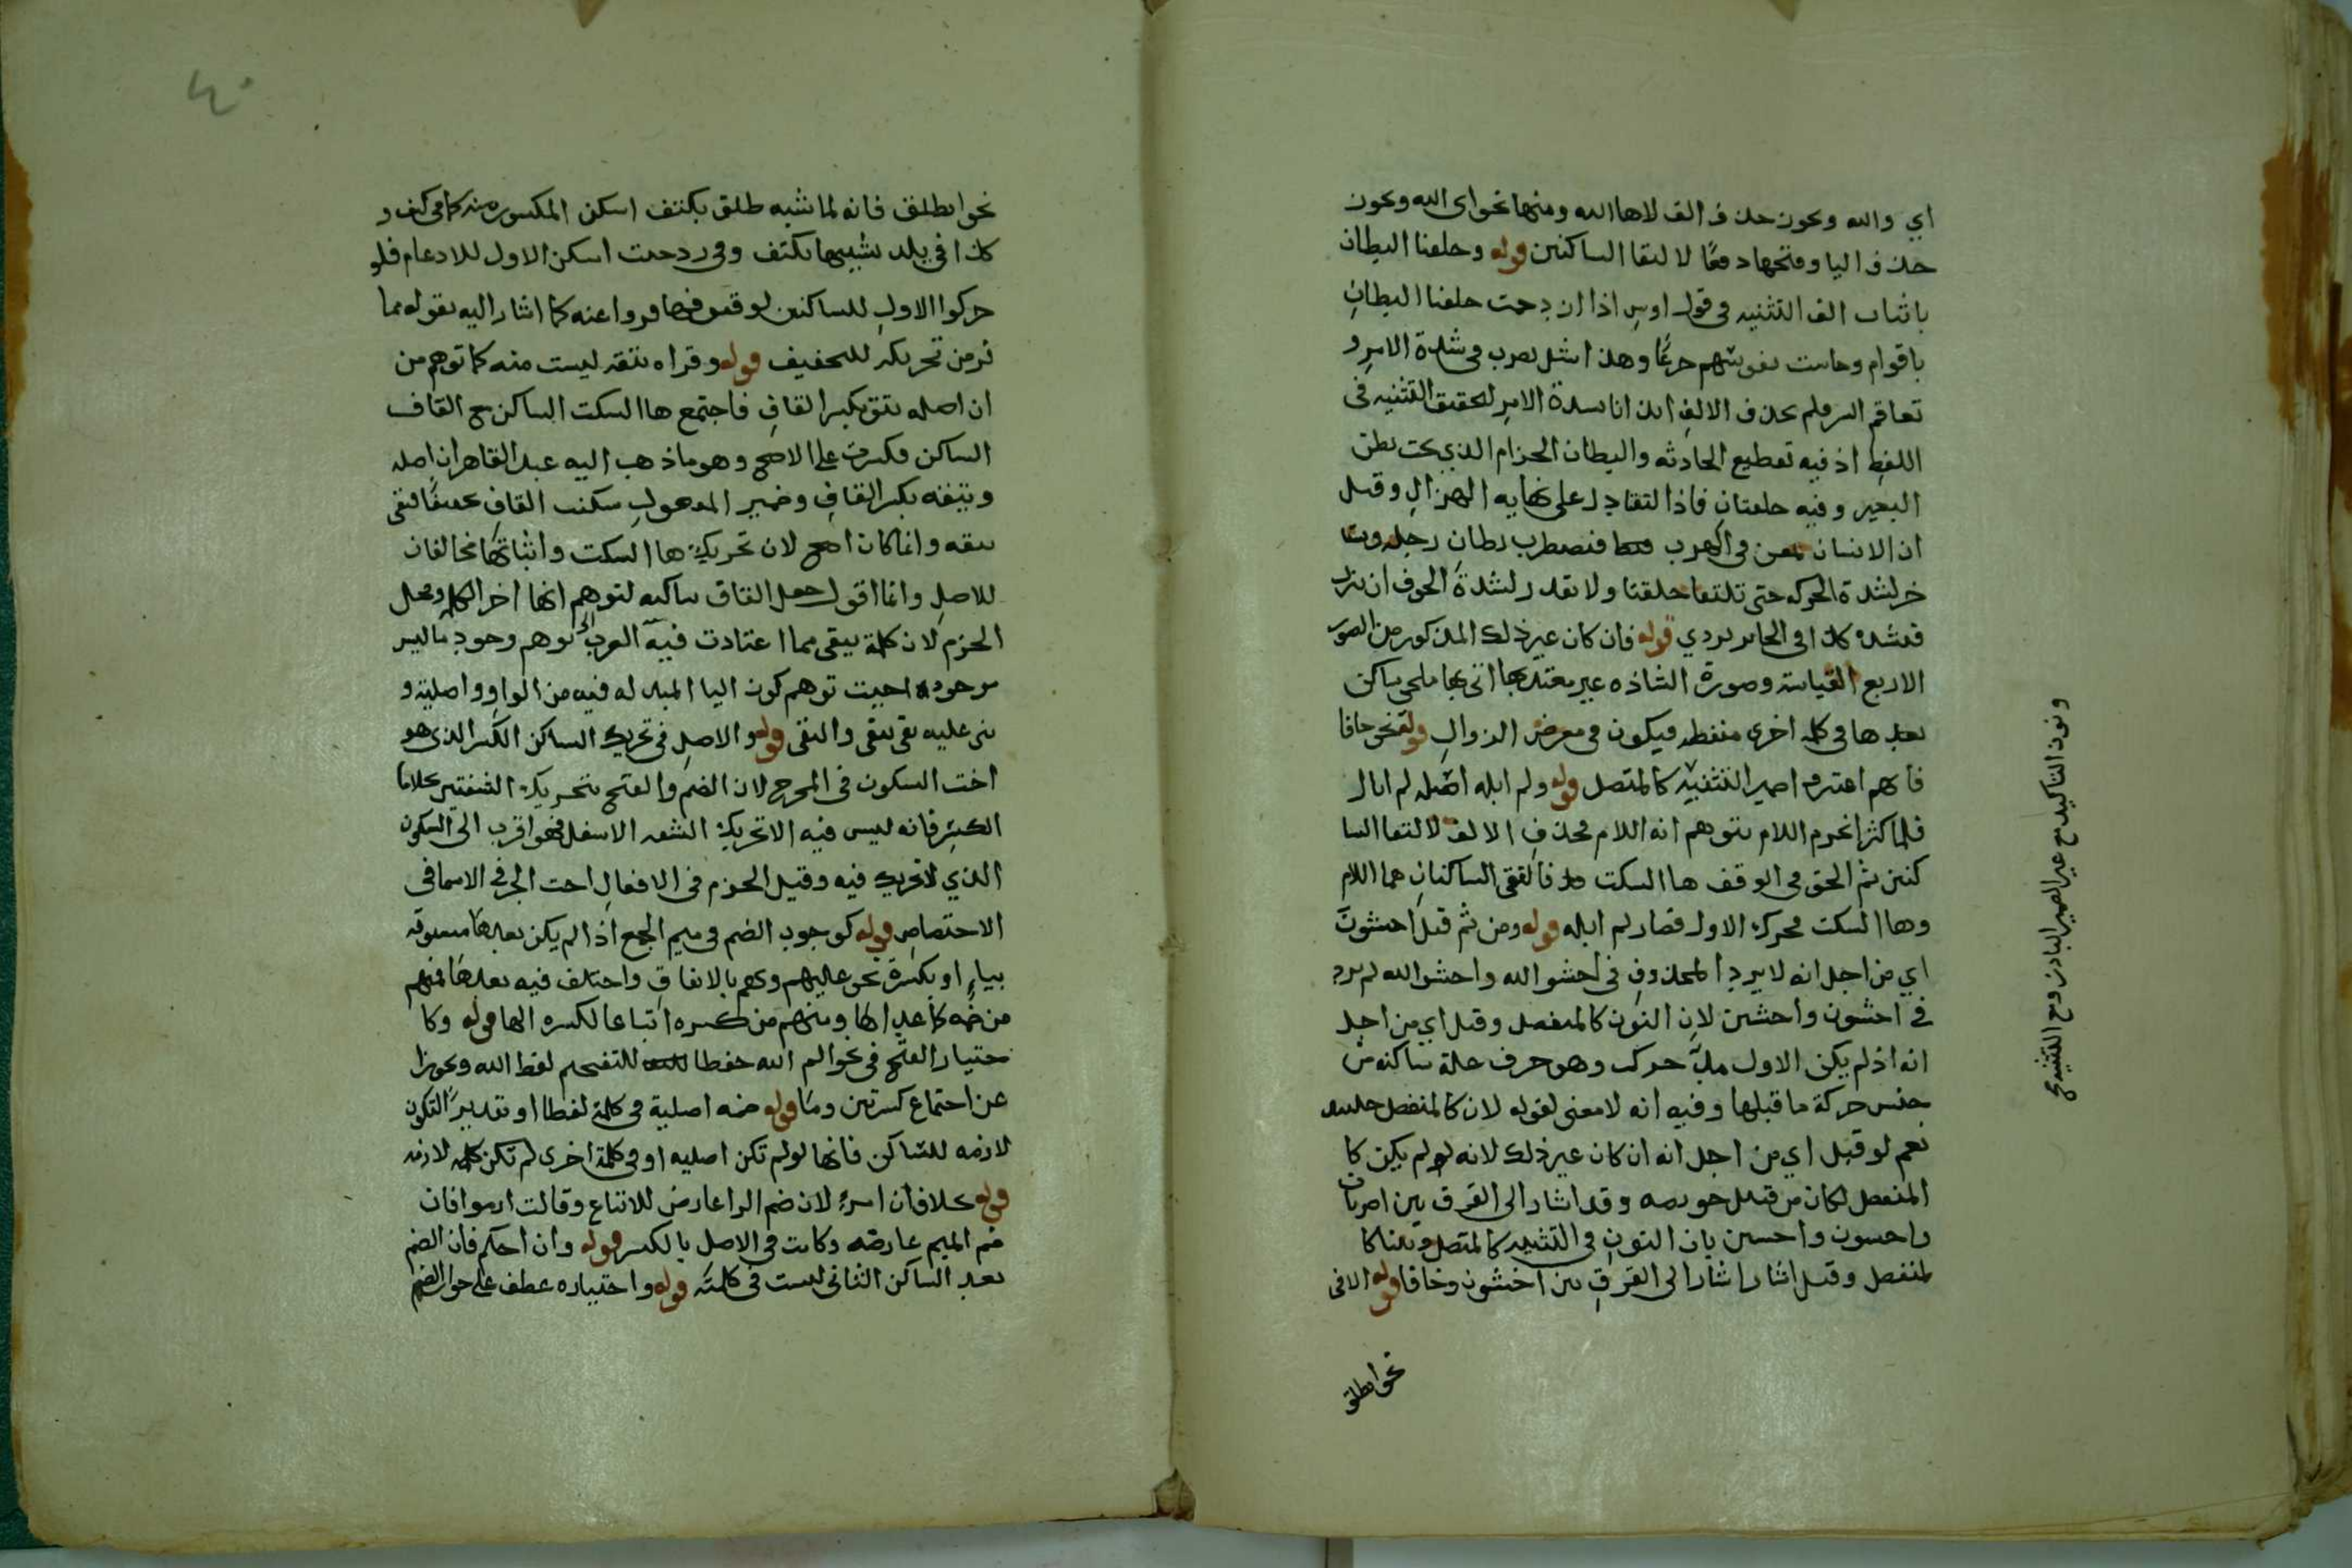 اي والله وبجوز حذف الف لاها الله ومنها نحو اى الله ويجوز
حذف اليا وفتحها دفعًا لالتقا الساكنين قوله وحلقتا البطان
باثبات الف التثنيه في قول اوس اذا ازدحمت حلقتا البطانِ
باقوام وجاشت نفوسهم جزعًا وهذا مثل يضرب في شدة الامر و
تفاقم الشر ولم يحذف الالف ايذانا بشدة الامر لتحقيق التثنيه فى
اللفظ اذ فيه تفظيع الحادثه والبطان الحزام الذي تحت بطن
البعير وفيه حلقتان فاذا التقا دل على نهايه الهزال وقيل
ان الانسان يمعن في الهرب فيضطرب بطان رحله ويتا
خر لشدة الحركه حتى تلتقا حلقتا ولا يقدر لشدة الخوف ان ينزل
فيشده كذا في الجاربردي قوله فان كان غير ذلك المذكور من الصور
الاربع القياسه وصورة الشاذه غير معتد بها اتى بها ساكن
بعدها في كلمه اخرى منفصله فيكون في معرض الزوال قوله نحو خافا
فانهم اعتبروا ضمير التثنيه كالمتصل قوله ولم ابله اصله لم ابال
فلما كثر انجزم اللام بتوهم انه اللام فحذف الالف لالتقا السا
كنين ثم الحق في الوقف ها السكت فالتقى الساكنان هما اللام
وها السكت فحرك الاول فصار لم ابله قوله ومن ثم قيل اخشون
اي من اجل انه لا يرد المحذوف في اخشوا الله واخشي الله لم يرد
في اخشون واخشين لان النون كالمنفصل وقيل اي من اجل
انه اذ لم يكن الاول مدّة حرك وهو حرف علة ساكنه من
جنس حركة ما قبلها وفيه انه لا معنى لقوله لانه كالمنفصل
نعم لو قيل اي من اجل انه ان كان غير ذلك لانه لو لم يكن كا
لمنفصل لكان من قبيل خويصه وقد اشار الى الفرق بين اضربان
واخشون واخشين بان النون في التثنيه كالمتصل
لمنفصل وقيل اشار اشار الى الفرق بين اخشون وخافا قوله الا فى
نحو انطلق
ونون التاكيد مع غير الضمير البارز ومع التثنيه صح
٤٠
نحو انطلق فانه لما شبه طلق بكتف اسكن المكسور منه كما في كتف و
كذا في يلد تشبيها بكتف وفي رد حيث اسكن الاول للادغام فلو
حركوا الاول للساكنين لوقعوا فيما فروا عنه كما اشار اليه بقوله مما
فر من تحريكه للتخفيف قوله وقراه يتقه ليست منه كما توهم من
ان اصله يتق بكسر القاف فاجتمع ها السكت الساكن مع القاف
الساكن فكسرت على الاصح وهو ما ذهب اليه عبد القاهر ان اصله
ويتقه بكسر القاف وضمير المفعول سكنت القاف تخفيفا فبقى
يتقه وانما كان اصح لان تحريك ها السكت واثباتها مخالفان
للاصل وانما اقول جعل القاف ساكنه لتوهم انها اخر الكلمه ومحل
الجزم لان كلمة يبقى مما اعتادت فيه العرب الى توهم وجود ما ليس
موجودا حيث توهم كون اليا المبدله فيه من الواو واصلية و
بنى عليه تقى يتقى واتقى قوله والاصل في تحريك الساكن الكسر الذى هو
اخت السكون فى المخرج لان الضم والفتح بتحريك الشفتين بخلاف
الكسر فانه ليس فيه الا تحريك الشفه الاسفل فهو اقرب الى السكون
الذي لا تحريك فيه وقيل الجزم فى الافعال اخت الجر فى الاسما فى
الاختصاص قوله كوجوب الضم في ميم الجمع اذا لم يكن بعدها مسبوقه
بياء او بكسرة نحو عليهم وبهم بالاتفاق واختلف فيه بعدها فمنهم
من ضمه كما عداها ومنهم من كسره اتباعا لكسره الها قوله وكا
ختيار الفتح في نحو الم الله حفظا للتفخيم لفظ الله وتحرزا
عن اجتماع كسرتين وما قوله ضمه اصلية في كلمة لفظا او تقديرًا لتكون
لازمه للساكن فانها لو لم تكن اصليه او في كلمة اخرى لم تكن كلمه لازمه
قوله بخلاف ان امرؤ لان ضم الرا عارض للاتباع وقالت ارموا فان
ضم الميم عارضه وكانت في الاصل بالكسر قوله وان احكم فان الضم
بعد الساكن الثانى ليست في كلمته قوله واختياره عطف على جواز الضم